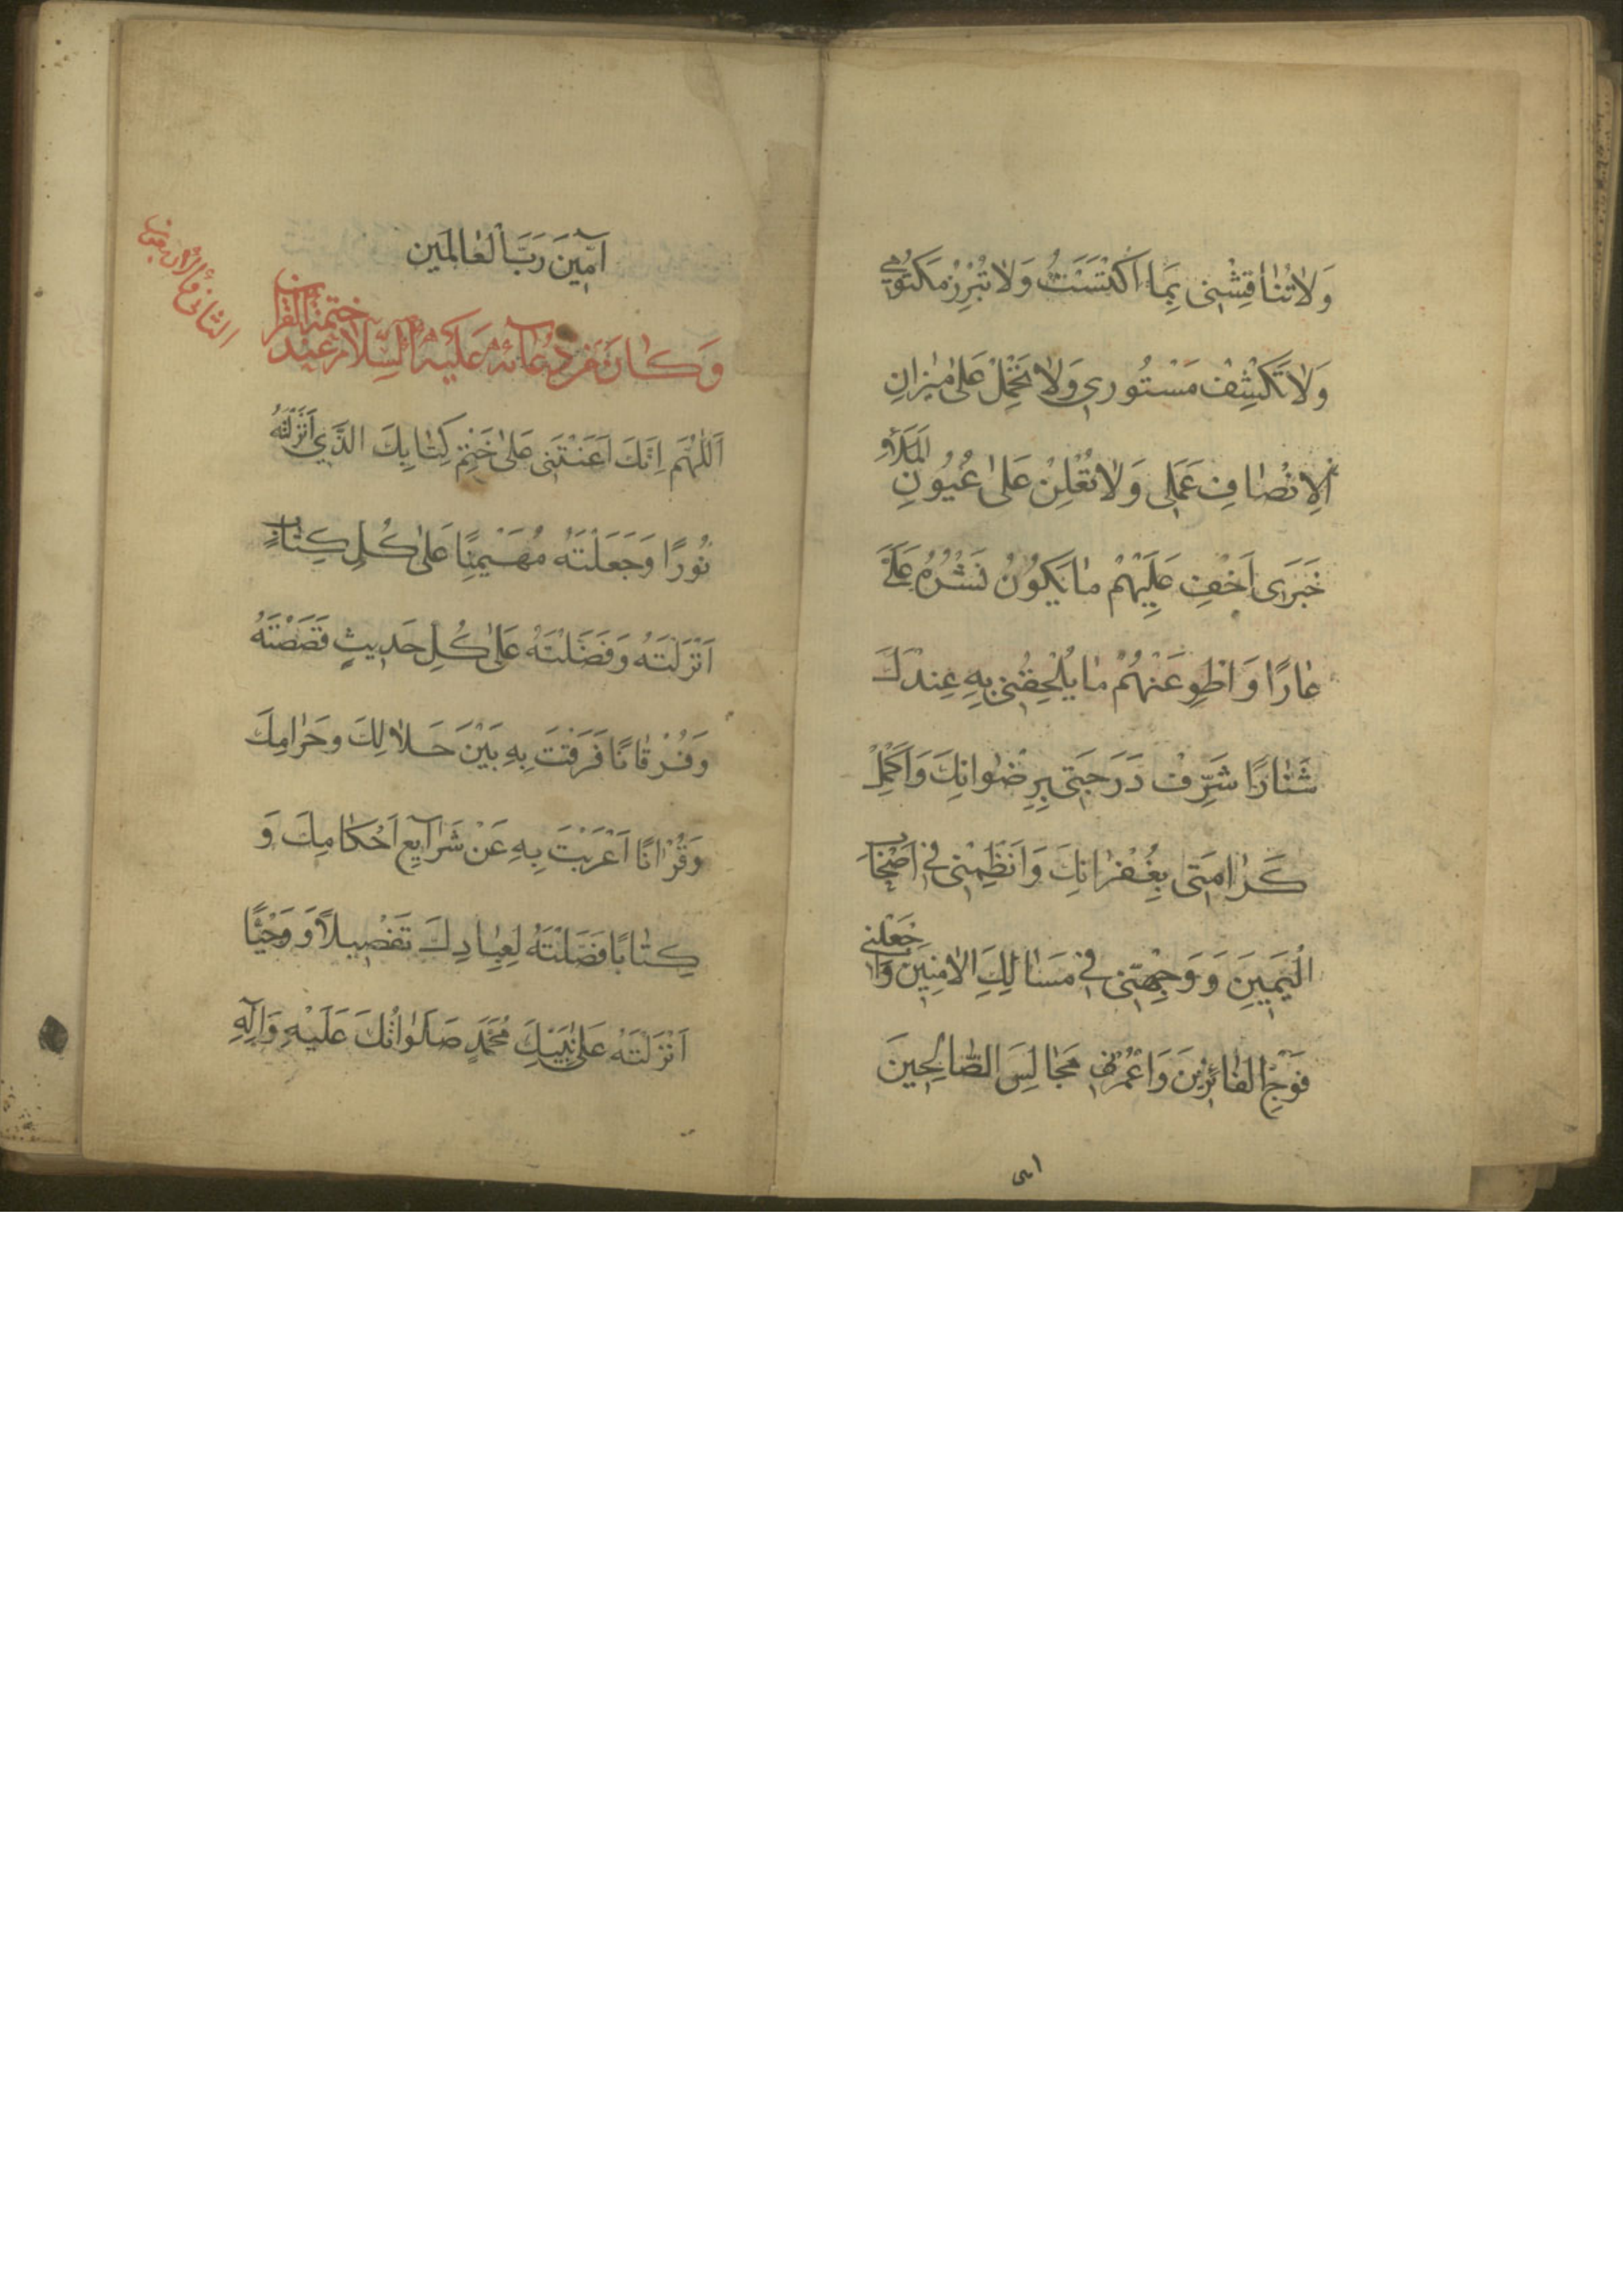 وَلَا تُنَاقِشْنِى بِمَا اكْتَسَبْتُ وَلَا تُبْرِزْ مَكْتُومِي
وَلَا تَكْشِفْ مَسْتُورِي وَلَا تَحْمِلْ عَلىٰ مِيزَانِ
الْاِنْصَافِ عَمَلِى وَلَا تُعْلِنْ عَلىٰ عُيُونِ الْمَلَاءِ
خَبَرِى اَخْفِ عَلَيْهِمْ مَا يَكُونُ نَشْرُهُ عَلَيَّ
عَارًا وَاطْوِ عَنْهُمْ مَا يُلْحِقُنِى بِهِ عِنْدَكَ
شَنَارًا شَرِّفْ دَرَجَتِى بِرِضْوَانِكَ وَاَكْمِلْ
كَرَامَتِى بِغُفْرَانِكَ وَانْظِمْنِى فِي اَصْحَابِ
الْيَمِينِ وَوَجِّهْنِى فِي مَسَالِكِ الْاٰمِنِينَ وَاجْعَلْنِي
فِي فَوْجِ الْفَائِزِينَ وَاعْمُرْ بِي مَجَالِسَ الصَّالِحِينَ
امى
اٰمِينَ رَبَّ الْعَالَمِين
وَكَانَ مِنْ دُعَائِهِ عَلَيْهِ السَّلَامُ عِنْدَ خَتْمِهِ الْقُرْاٰنَ
الثانى والاربعون
اَللّٰهُمَّ اِنَّكَ اَعَنْتَنِى عَلىٰ خَتْمِ كِتَابِكَ الَّذِي اَنْزَلْتَهُ
نُورًا وَجَعَلْتَهُ مُهَيْمِنًا عَلىٰ كُلِّ كِتَابٍ
اَنْزَلْتَهُ وَفَضَّلْتَهُ عَلىٰ كُلِّ حَدِيثٍ قَصَصْتَهُ
وَفُرْقَانًا فَرَقْتَ بِهِ بَيْنَ حَلَالِكَ وَحَرَامِكَ
وَقُرْاٰنًا اَعْرَبْتَ بِهِ عَنْ شَرَآيِعِ اَحْكَامِكَ وَ
كِتَابًا فَصَّلْتَهُ لِعِبَادِكَ تَفْصِيلًا وَ وَحْيًا
اَنْزَلْتَهُ عَلىٰ نَبِيِّكَ مُحَمَّدٍ صَلَوَاتُكَ عَلَيْهِ وَاٰلِهِ